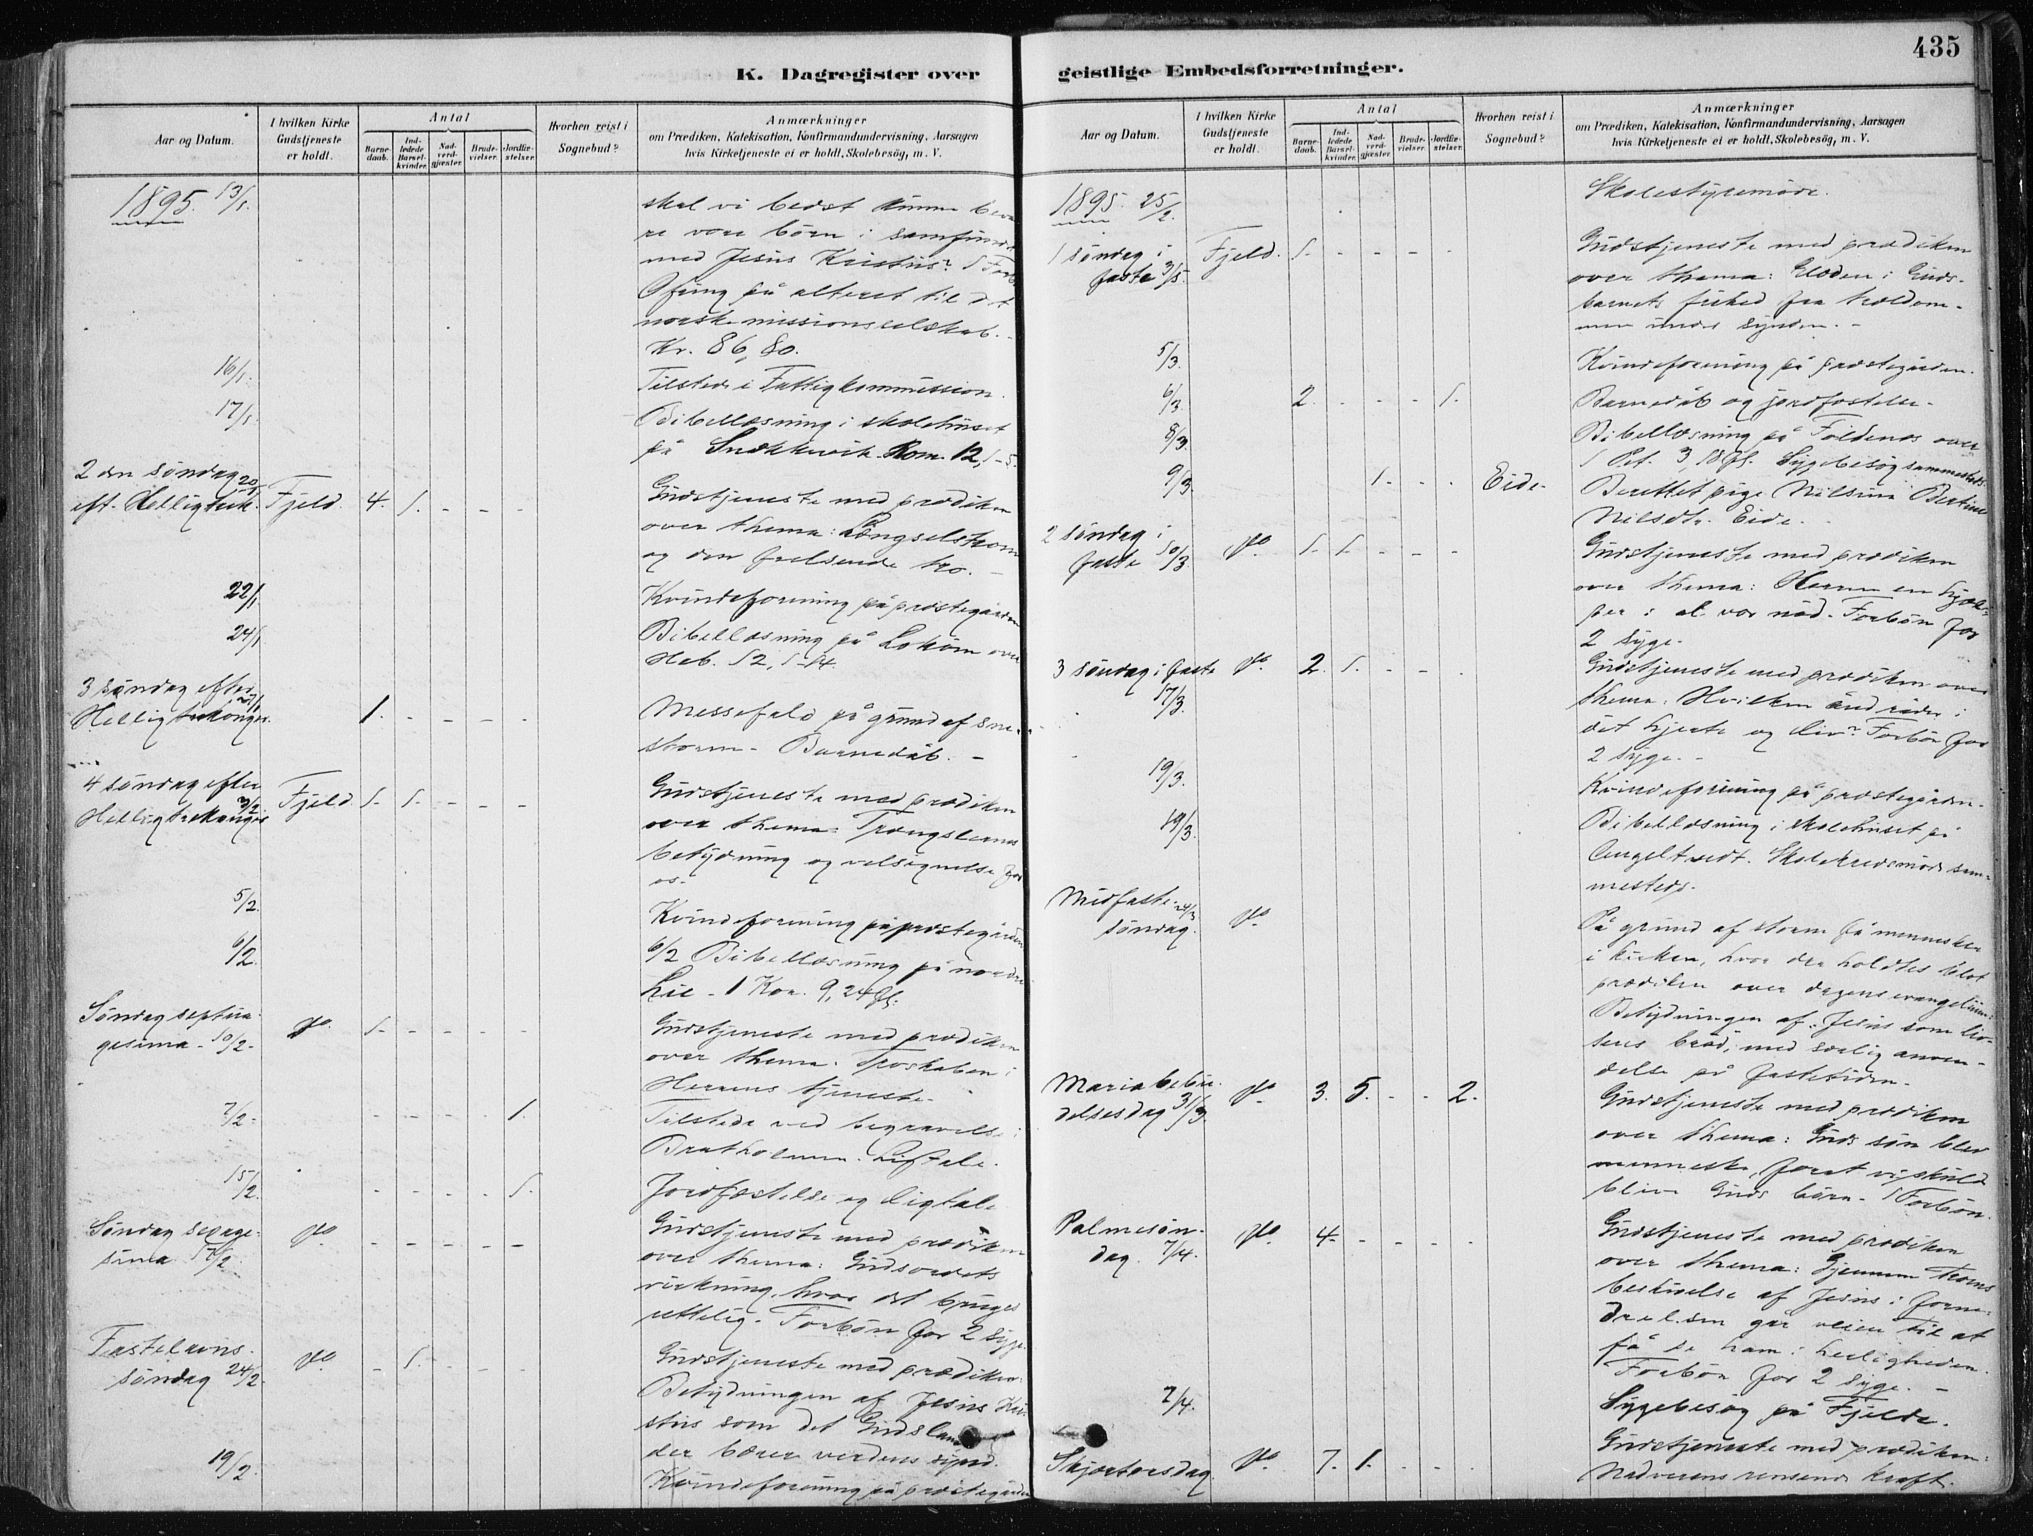 435
K. Dagregister over geistlige Embedsforretninger.
Aar og Datum.
I hvilken Kirke Gudstjeneste er holdt.
Antal
Barne-daab.
Ind-ledede Barsel-kvinder.
Nad-verd-gjæster.
Brude-vielser.
Jordfæ-stelser.
Hvorhen reist i Sognebud?
Anmærkninger
om Prædiken, Katekisation, Konfirmandundervisning, Aarsagen
hvis Kirketjeneste ei er holdt, Skolebesøg, m. V.
1895. 13/1.
skal vi bedst kunne beva
re vore børn i samfund
med Jesus Kristus? 1 Forb.
Ofring på alteret til det
norske missionsselskab.
Kr. 86,80.
16/1. Tilstede i Fattigkommission.
17/1. Bibellæsning i skolehuset
på Snekkevik Rom. 12, 1-5.
2 den søndag 20/1
eft. Helligtrek. Fjeld. 4. 1. - - -
Gudstjeneste med prædiken
over thema: Længselstroen
og den frelsende tro. -
22/1 Kvindeforening på prestegården
24/1. Bibellæsning på Lokøen over
Heb. 12, 1-14.
3 søndag efter 27/1
Helligtrekonger. 1. - - - -
Messefald på grund af sne-
storm - Barnedåb. -
4 søndag efter
Helligtrekonger 3/2 Fjeld 1. 1. - - -
Gudstjeneste med prædiken
over thema: Trængslernes
betydning og velsignelse for
os.
5/2. Kvindeforening på prestegården
6/2. 6/2 Bibellæsning på nordre
Lie - 1 Kor. 9, 24 fl.
Søndag septua-
gesima - 10/2 - do. 1. - - - -
Gudstjeneste med prædiken
over thema. Troskaben i
Herrens tjeneste.
7/2 - - - - - 1.
Tilstede ved begravelse i
Bratholmen. Ligtale.
15/2. - - - - 1.
Jordfæstelse og Ligtale
Søndag sexage-
sima 17/2 do - - - - -
Gudstjeneste med prædiken
over thema: Gudsordets
virkning, hvor det bruges
rettelig. Forbøn for 2 syge.
Fastelavns-
søndag 24/2. do - 1. - - -
Gudstjeneste med prædiken:
Betydningen af Jesus Kri-
stus som det Guds lam
der bærer verdens synd.
19/2. Kvindeforening på prestegården
Aar og Datum.
I hvilken Kirke Gudstjeneste er holdt.
Antal
Barne-daab.
Ind-ledede Barsel-kvinder.
Nad-verd-gjæster.
Brude-vielser.
Jordfæ-stelser.
Hvorhen reist i Sognebud?
Anmærkninger
om Prædiken, Katekisation, Konfirmandundervisning, Aarsagen
hvis Kirketjeneste ei er holdt, Skolebesøg, m. V.
1895. 25/2. Skolestyremøde.
1 søndag i
faste 3/3. Fjeld. 1. - - - -
Gudstjeneste med prædiken
over thema: Glæden i Guds-
barnets frihed fra trældom-
men under synden. -
5/3. Kvindeforening på prestegården.
6/3. 2. - - - 1. Barnedåb og jordfæstelse -
8/3. Bibellæsning på Foldenes over
1 Pet. 3, 18 fl. Sygebesøg sammesteds.
9/3. 1. - - Eide. Berettet pige Nilsine Bertine
Nilsdtr. Eide. -
2 søndag i
faste 10/3 do 1. 1. - - -
Gudstjeneste med prædiken
over thema: Herren en hjæl-
per i al vor nød. Forbøn for
2 syge.
3 søndag i faste
17/3. do. 2. 1. - - -
Gudstjeneste med prædiken over
thema: Hvilken ånd råder i
dit hjerte og liv? Forbøn for
2 syge. -
19/3. Kvindeforening på prestegården.
19/3. Bibellæsning i skolehuset på
Angeltvedt. Skolekredsmøde sam-
mesteds.
Midfaste- 24/3
søndag. do.
På grund af storm få mennesker
i kirken, hvor der holdtes blot
prædiken over dagens evangelium:
Betydningen af Jesus som liv-
sens brød, med særlig anven-
delse på fastetiden.
Maria bebu-
delsesdag 31/3. do. 3. 5. - - 2.
Gudstjeneste med prædiken
over thema: Guds søn blev
menneske, foråt vi skuld
blive Guds børn. 1 Forbøn.
Palmesøn-
dag. 7/4. do. 4. - - - -
Gudstjeneste med prædiken
over thema: Gjennem Troens
beskuelse af Jesus i forne-
drelsen går veien til at
få se ham i herligheden.
Forbøn for 2 syge. -
7/4. Sygebesøg på Fjelde.
Skjærtorsdag do 7. 1. - - -
Gudstjeneste med prædiken:
Nadverens rensende kraft.